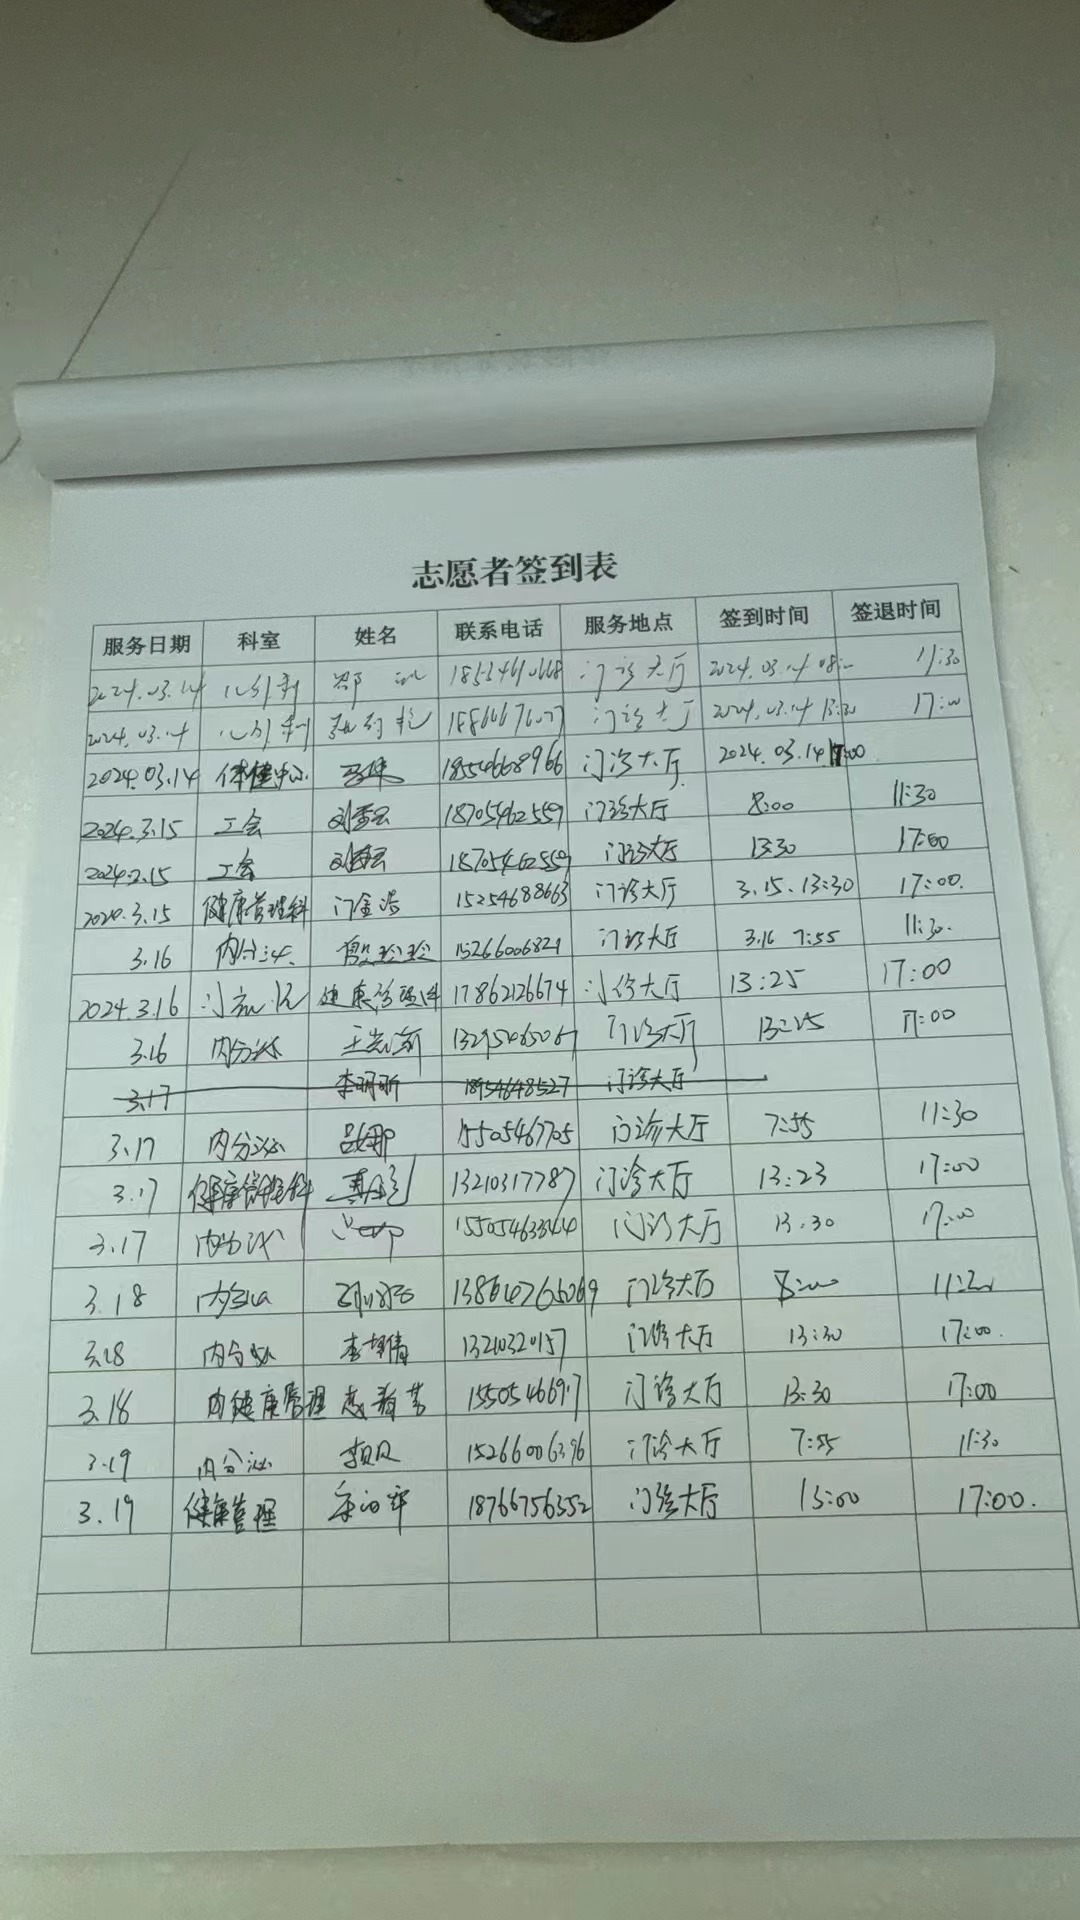 志愿者签到表
服务日期 科室 姓名 联系电话 服务地点 签到时间 签退时间
2024.03.14 门诊大厅 2024.03.14 08:00 11:30
2024.03.14 门诊大厅 2024.03.14 13:30 17:00
2024.03.14 体检中心 18554668966 门诊大厅 2024.03.14 17:00
2024.3.15 工会 18705462559 门诊大厅 8:00 11:30
2024.3.15 工会 18705462559 门诊大厅 13:30 17:00
3.15 健康管理科 门金浩 15254688663 门诊大厅 3.15.13:30 17:00.
3.16 内分泌 殷玲玲 15266006821 门诊大厅 3.16 7:55 11:30.
2024.3.16 健康管理科 17862126674 门诊大厅 13:25 17:00
3.16 内分泌 门诊大厅 13:25 17:00
3.17 李明昕 18954648527 门诊大厅
3.17 内分泌 吕娜 15505467705 门诊大厅 7:55 11:30
3.17 健康管理科 13210317787 门诊大厅 13:23 17:00
3.17 内分泌 门诊大厅 13:30 17:00
3.18 内分泌 门诊大厅 8:00 11:30
3.18 内分泌 13210320157 门诊大厅 13:30 17:00.
3.18 内健康管理 门诊大厅 13:30 17:00
3.19 内分泌 15266006396 门诊大厅 7:55 11:30
3.19 健康管理 18766756352 门诊大厅 13:00 17:00.